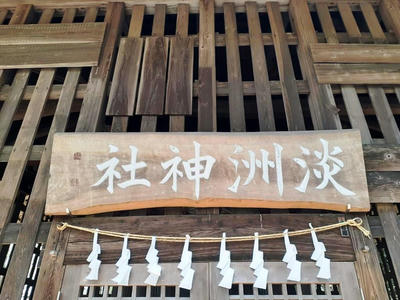 淡洲神社